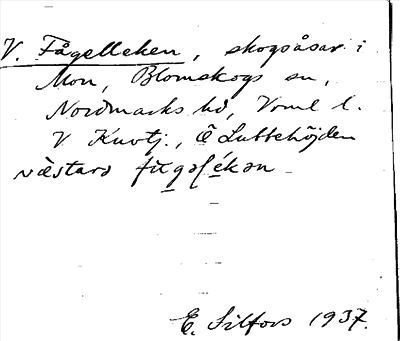 V. Fågelleken, skogsåsar i
Mon, Blomskogs sn,
Nordmarks hd, Vrml l.
V Kuvtj., Ö Lubbehöjden
væstarə fugəlékən
E. Silfors 1937.